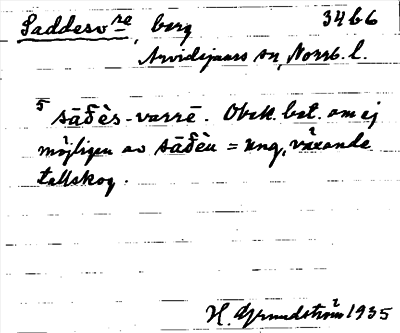 Saddesvre, berg 34 b 6
Arvidsjaurs sn, Norrb. l.
5 sāđ̄ès-varrē. Obek. bet. om ej
möjligen av sāđ̄èu = ung, växande
tallskog.
H. Grundström 1935